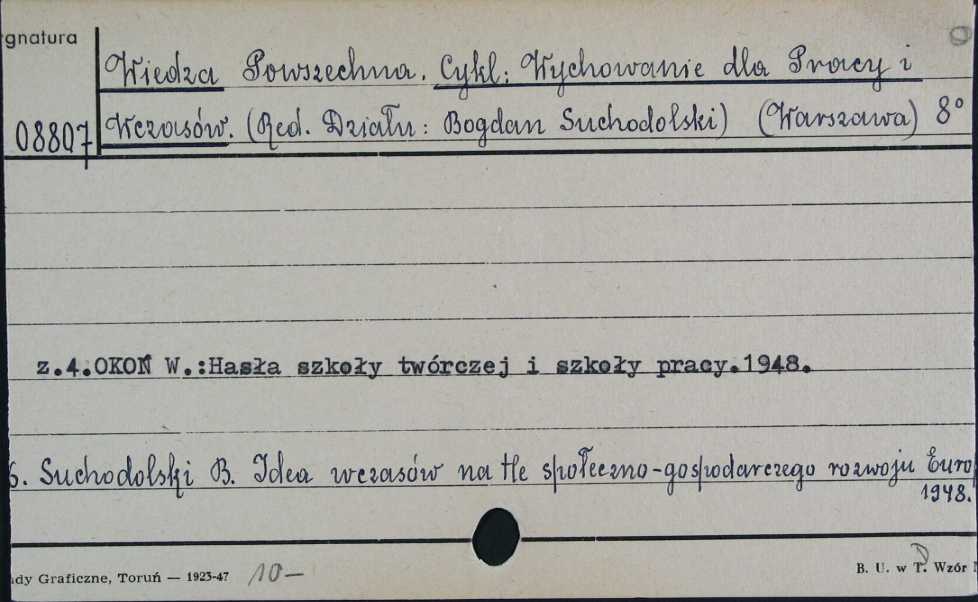 gnatura
Wiedza Powszechna. Cykl: Wychowanie dla Pracy i
08807 Wczasów. (Red. Działu: Bogdan Suchodolski) (Warszawa) 8°
z.4.OKOŃ W.:Hasła szkoły twórczej i szkoły pracy.1948.
6. Suchodolski B. Idea wczasów na tle społeczno-gospodarczego rozwoju Euro
1948.
dy Graficzne, Toruń — 1923-47 10—
B. U. w T. Wzór